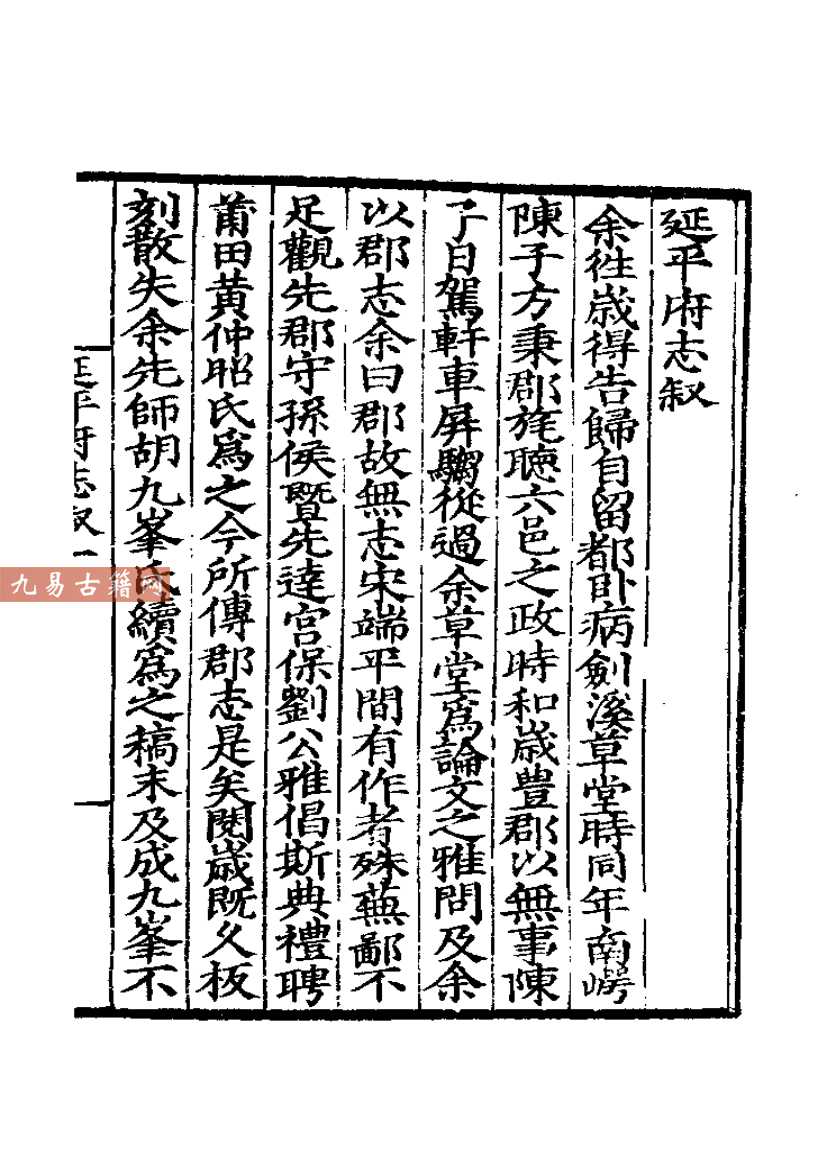 延平府志叙
余徃歲得告歸自留都卧病劍溪草堂時同年南㟧
陳子方秉郡旄聴六邑之政時和歳豊郡以無事陳
子日駕軒車屏騶從過余草堂爲論文之雅問及余
以郡志余曰郡故無志宋端平間有作者殊蕪鄙不
足觀先郡守孫侯暨先逹宫保劉公雅倡斯典禮聘
莆田黄仲昭氏爲之今所傳郡志是矣閱歳既久板
刻散失余先師胡九峯氏續爲之稿未及成九峯不
延平府志叙一
九易古籍网